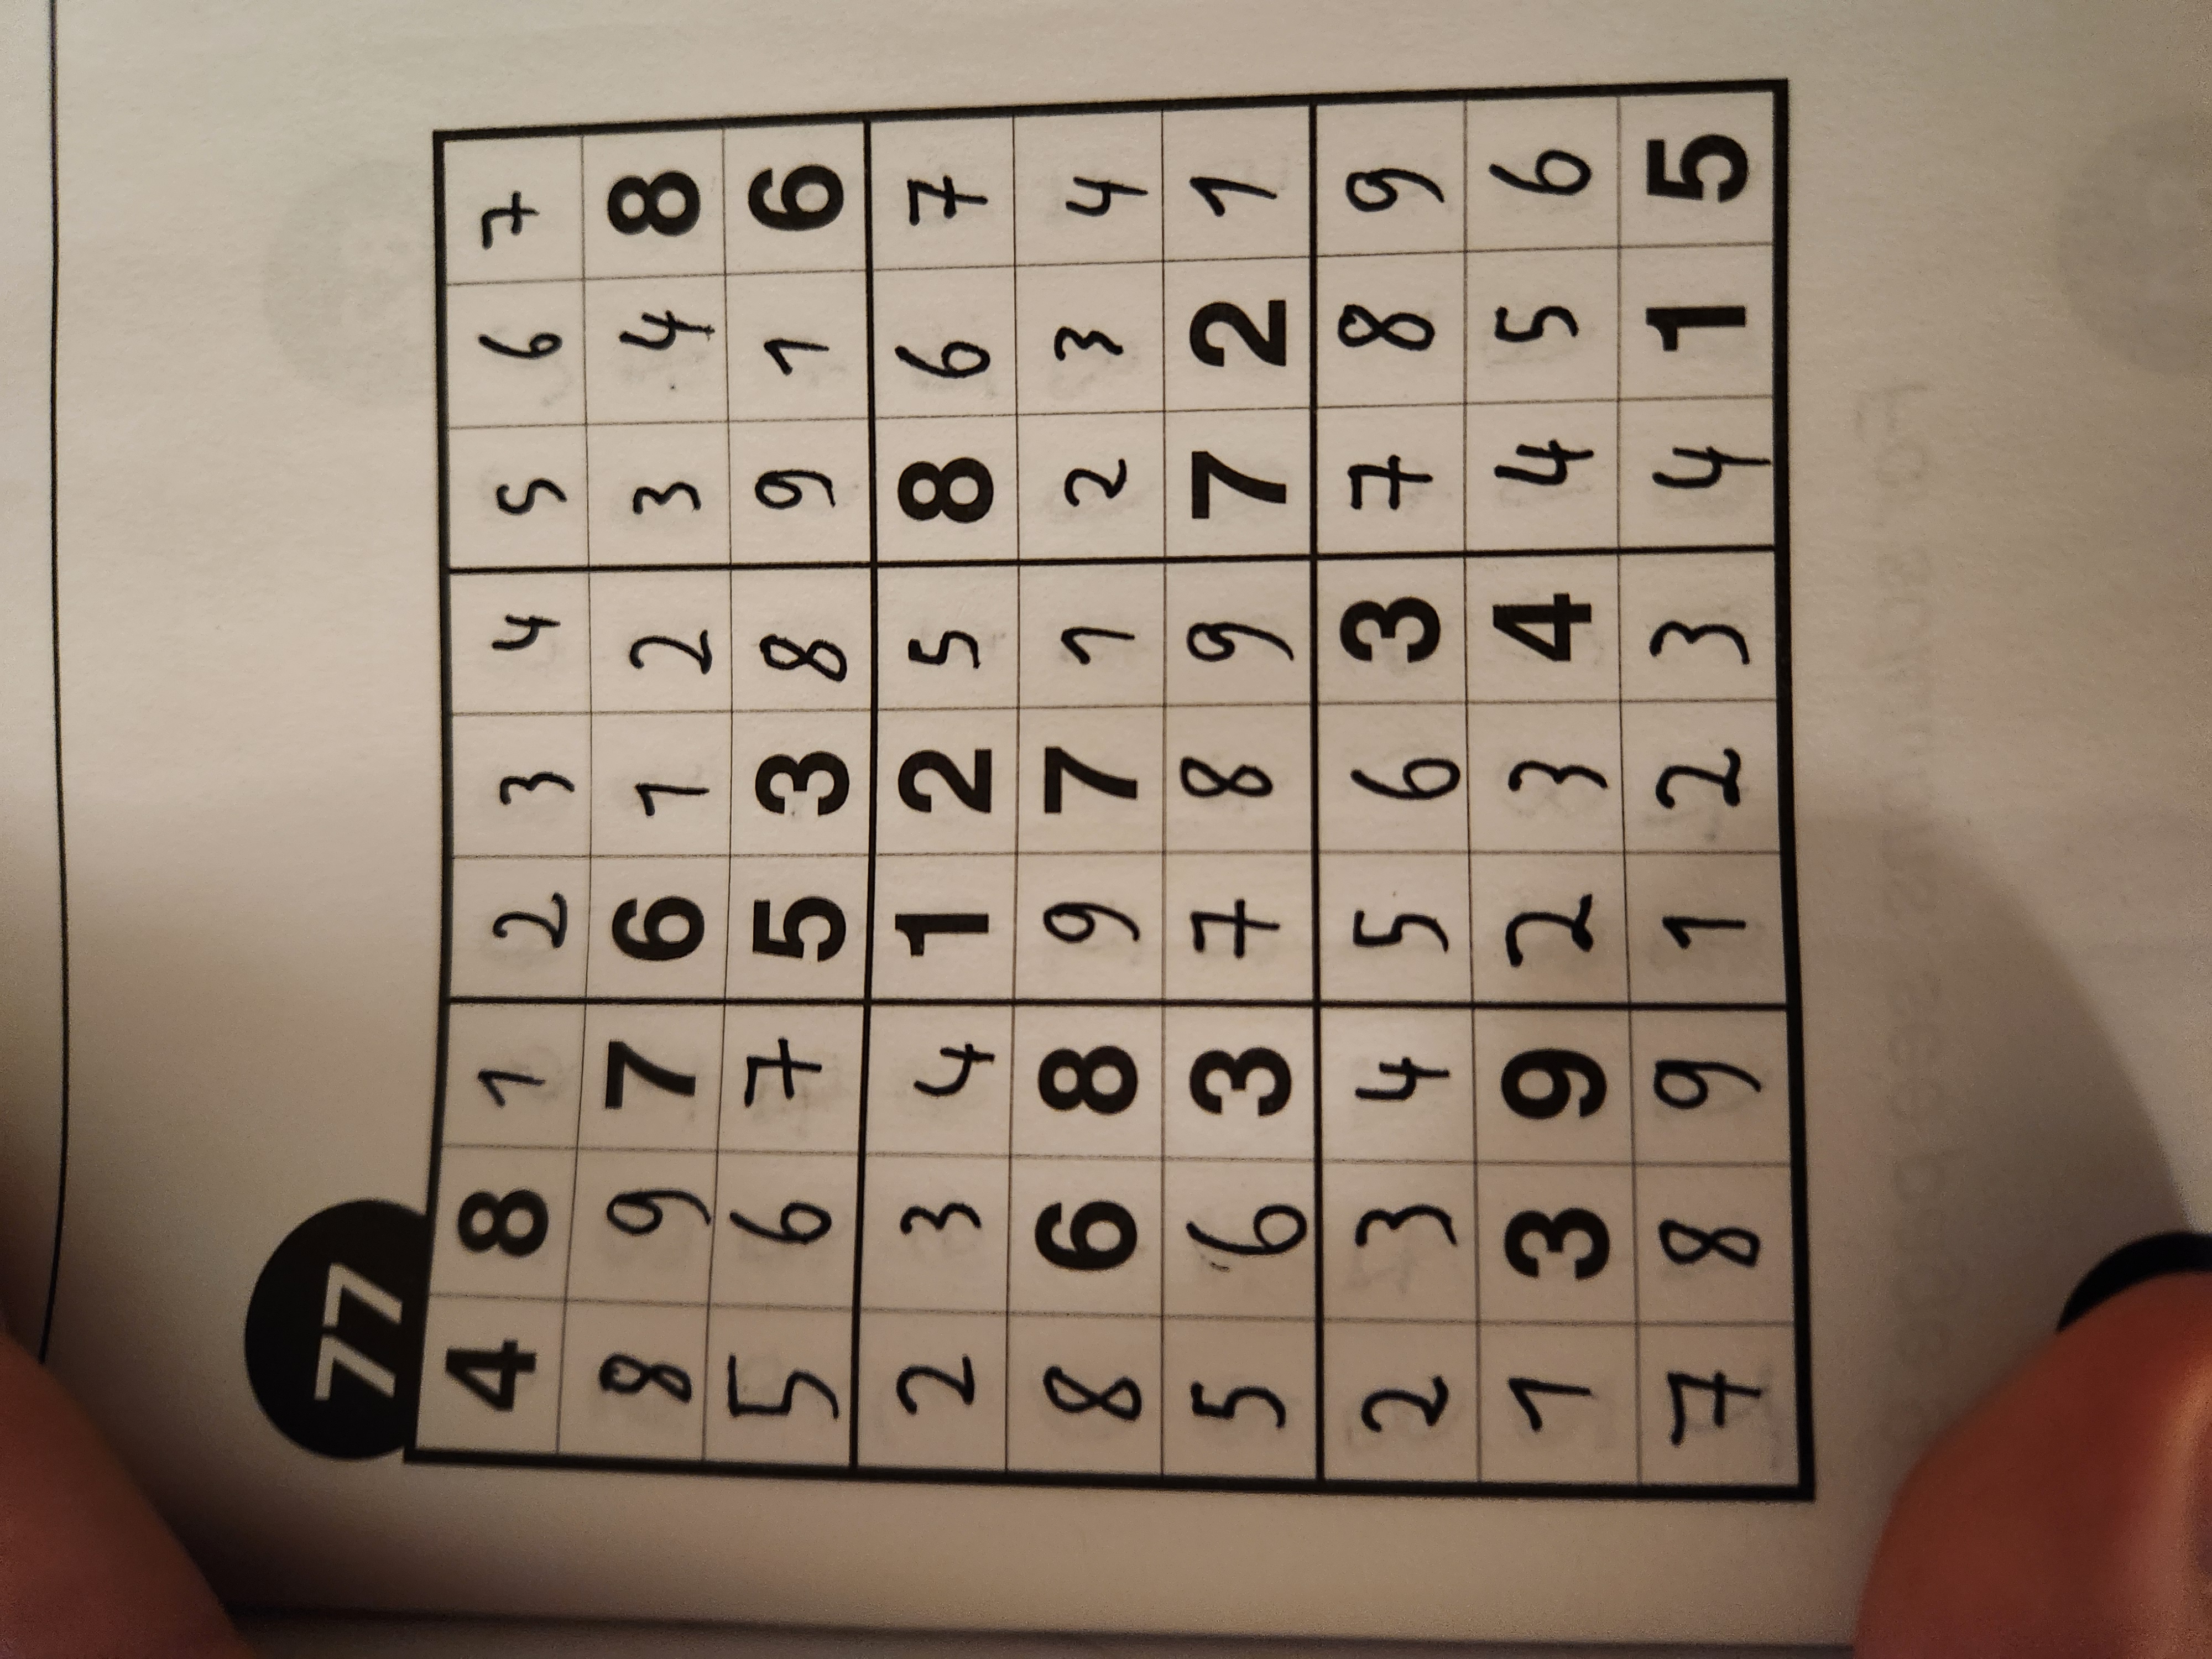 77
4 8 1 2 3 4 5 6 7
8 9 7 6 1 2 3 4 8
5 6 7 5 3 8 9 1 6
2 3 4 1 2 5 8 6 7
8 6 8 9 7 1 2 3 4
5 6 3 7 8 9 7 2 1
2 3 4 5 6 3 7 8 9
1 3 9 2 3 4 4 5 6
7 8 9 1 2 3 4 1 5
For solutions, see page